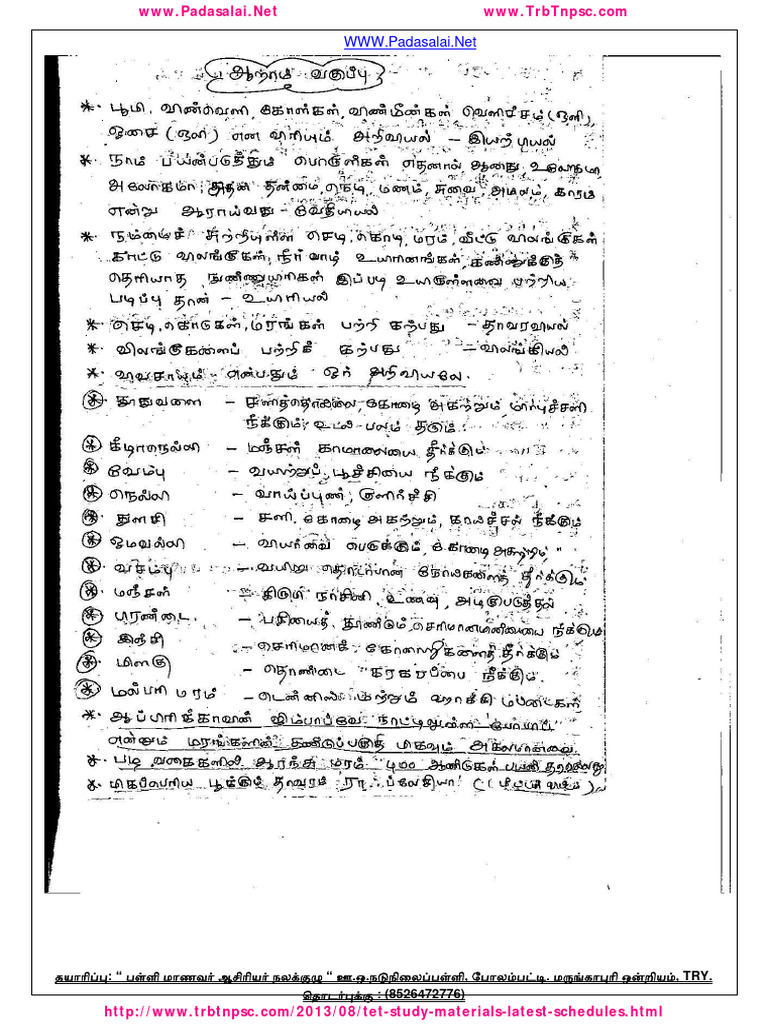 www.Padasalai.Net www.TrbTnpsc.com
WWW.Padasalai.Net
ஆறாம் வகுப்பு
* பூமி, விண்வெளி, கோள்கள், விண்மீன்கள் வெளிச்சம் (ஒளி),
ஓசை (ஒலி) என விரியும் அறிவியல் - இயற்பியல்
* நாம் பயன்படுத்தும் பொருள்கள் எதனால் ஆனது உலோகமா
அலோகமா, அதன் தன்மை, நெடி, மணம், சுவை, அமிலம், காரம்
என்று ஆராய்வது - வேதியியல்
* நம்மைச் சுற்றியுள்ள செடி, கொடி, மரம், வீட்டு விலங்குகள்
காட்டு விலங்குகள், நீர்வாழ் உயிரினங்கள், கண்ணுக்குத்
தெரியாத நுண்ணுயிரிகள் இப்படி உயிருள்ளவை பற்றிய
படிப்பு தான் - உயிரியல்
* செடி, கொடிகள், மரங்கள் பற்றி கற்பது - தாவரவியல்
* விலங்குகளைப் பற்றிக் கற்பது - விலங்கியல்
* விவசாயம் என்பதும் ஓர் அறிவியலே.
* தூதுவளை - சளித்தொல்லை, கோழை அகற்றும், மார்புச்சளி
நீக்கும், உடல் பலம் தரும்
* கீழாநெல்லி - மஞ்சள் காமாலையை தீர்க்கும்
* வேம்பு - வயிற்றுப் பூச்சியை நீக்கும்
* நெல்லி - வாய்ப்புண், குளிர்ச்சி
* துளசி - சளி, கோழை அகற்றும், காய்ச்சல் நீக்கும்
* ஓமவல்லி - வியர்வை பெருக்கும், கோழை அகற்றும் "
* வசம்பு - வயிறு தொடர்பான நோய்களைத் தீர்க்கும்
* மஞ்சள் - கிருமி நாசினி, உணவு, அழகுபடுத்தல்
* பிரண்டை - பசியைத் தூண்டும், செரிமானமின்மையை நீக்கும்
* இஞ்சி - செரிமானக் கோளாறுகளைத் தீர்க்கும்
* மிளகு - தொண்டை கரகரப்பை நீக்கும்.
* மல்பரி மரம் - டென்னிஸ் மற்றும் ஹாக்கி மட்டைகள்
* ஆப்பிரிக்காவின் ஜிம்பாப்வே நாட்டிலுள்ள
என்னும் மரங்களின் தண்டுப்பகுதி மிகவும் அகலமானவை
* பழ வகைகளில் ஆரஞ்சு மரம் 400 ஆண்டுகள் பயன் தரவல்லது
* மிகப்பெரிய பூக்கும் தாவரம் ராஃப்லேசியா
தயாரிப்பு: “ பள்ளி மாணவர் ஆசிரியர் நலக்குழு “ ஊ.ஒ.நடுநிலைப்பள்ளி, போலம்பட்டி. மருங்காபுரி ஒன்றியம், TRY.
தொடர்புக்கு : (8526472776)
http://www.trbtnpsc.com/2013/08/tet-study-materials-latest-schedules.html